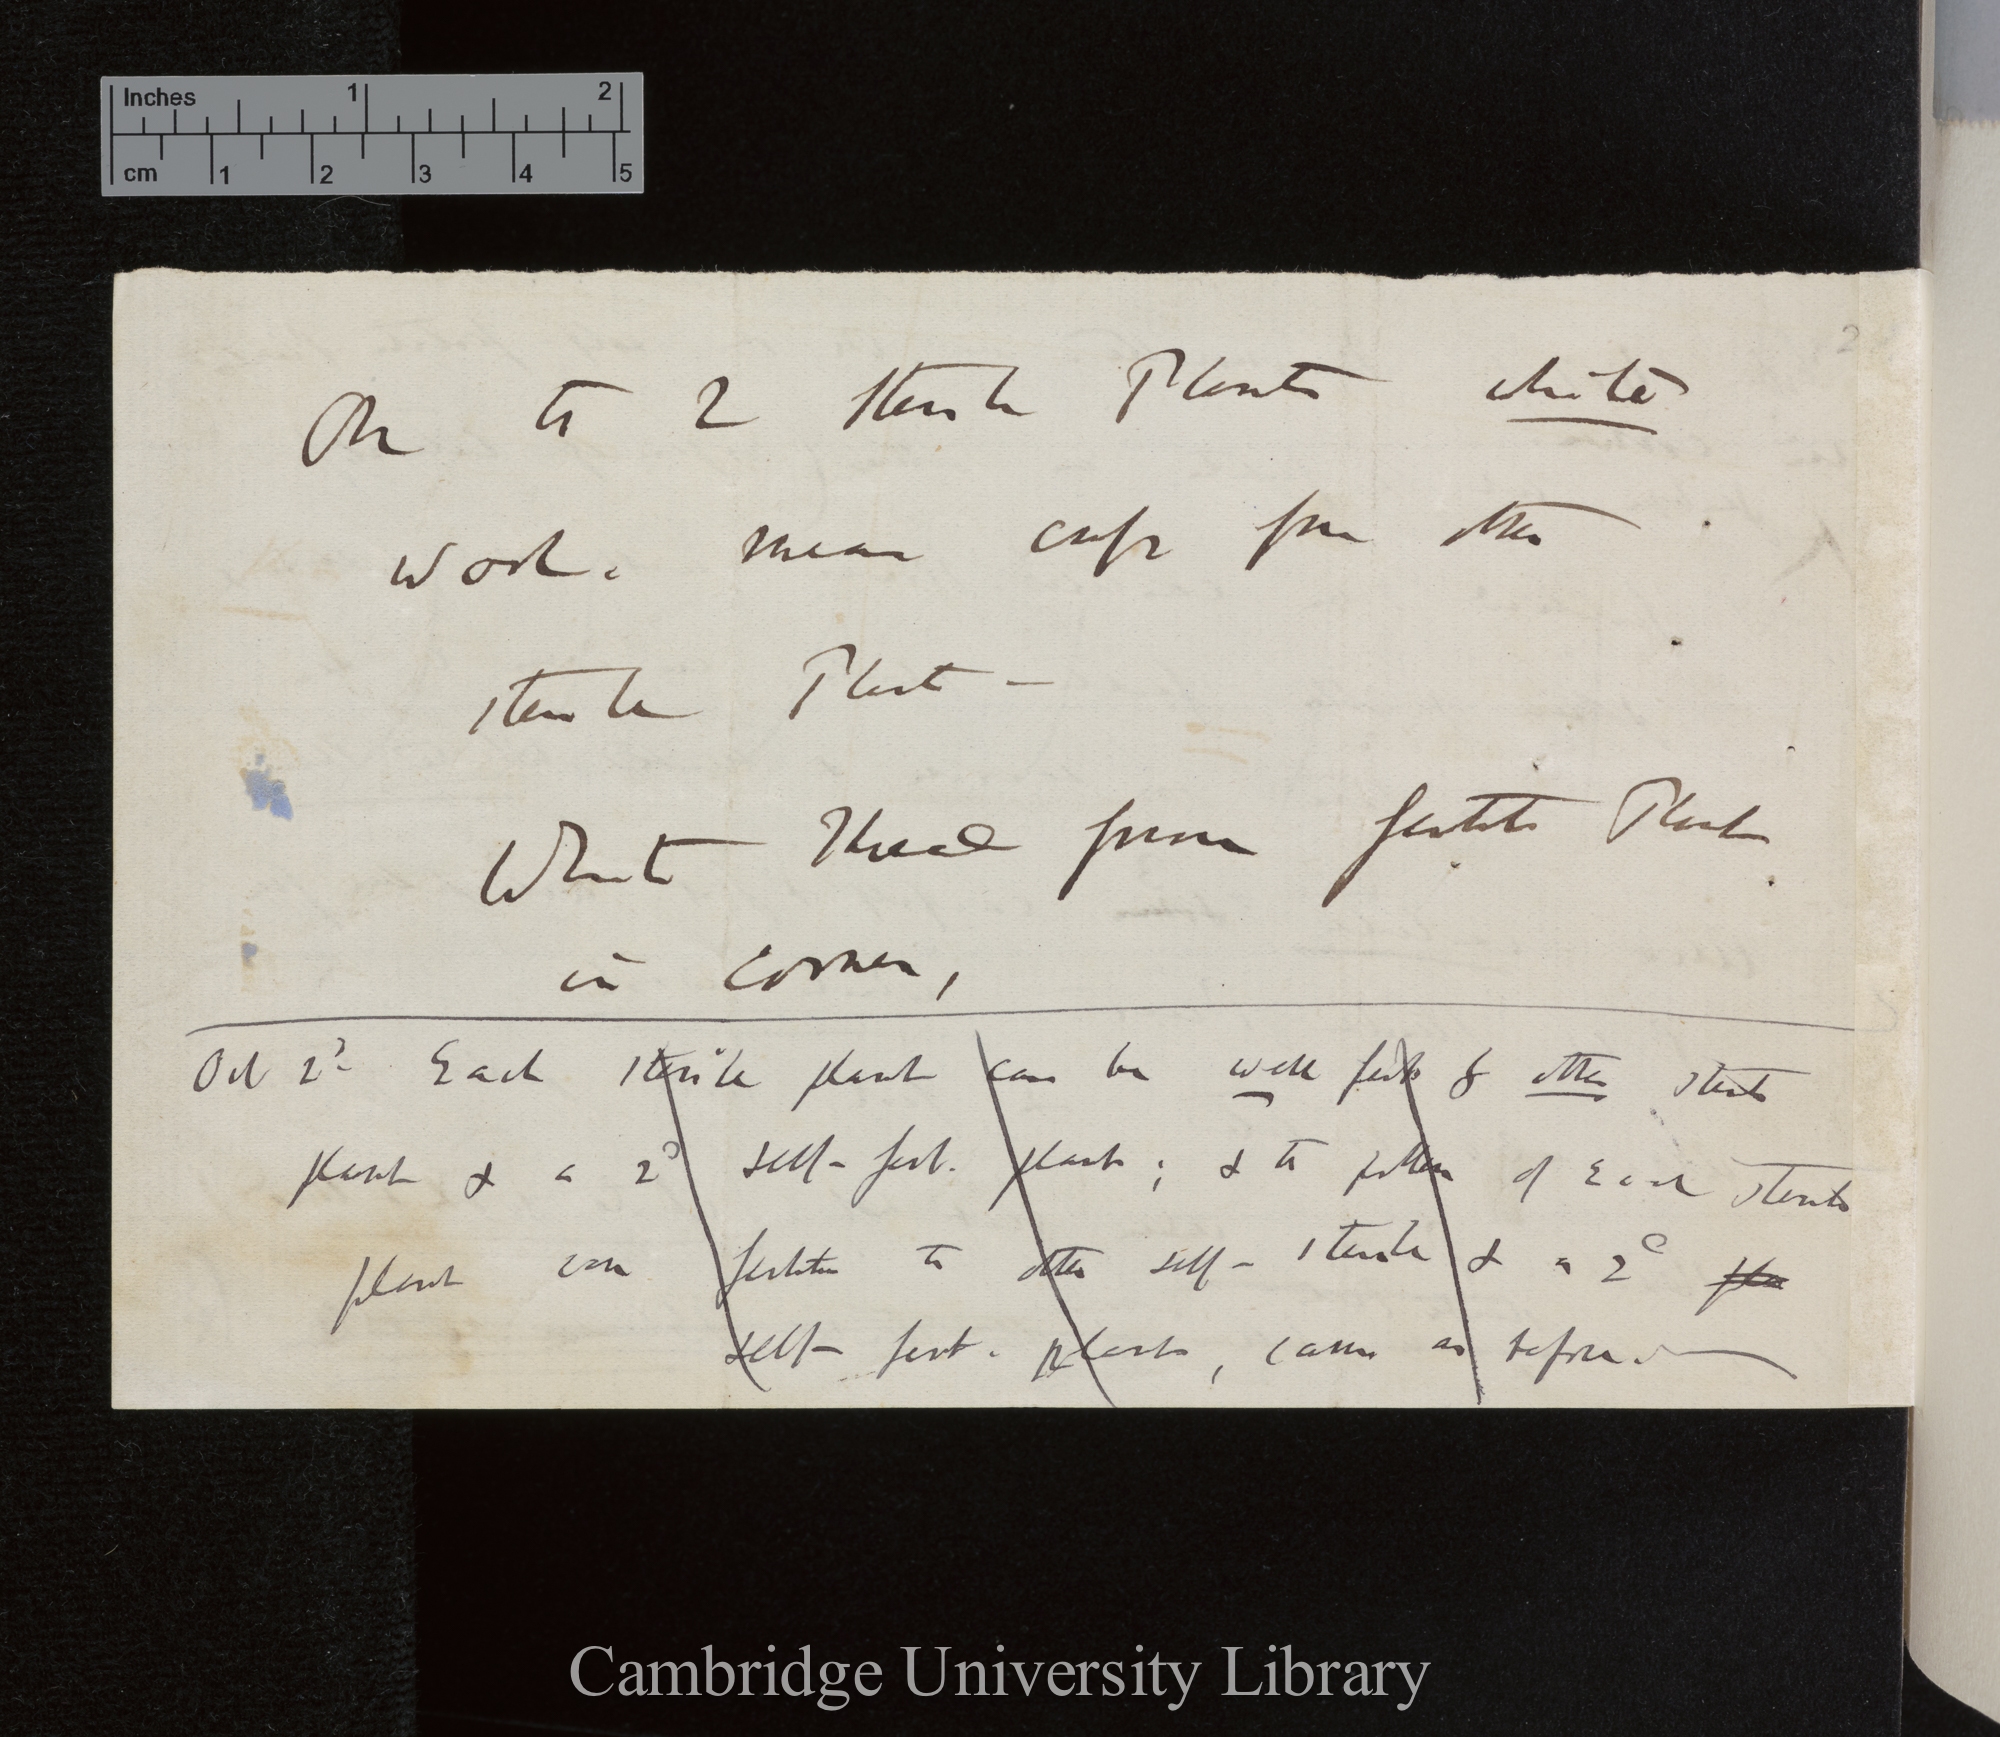 Inches 1 2
cm 1 2 3 4 5
2
On the 2 sterile Plants white
wool. means caps from other
sterile Plant —
White Thread from fertile Plant
in corner,
Oct 2d Each sterile plant can be well fert by other sterile
plant & a 2d self-fert. plant; & the pollen of each sterile
plant can fertilise the other self-sterile & a 2d
self-fert. plants, same as before.—
Cambridge University Library